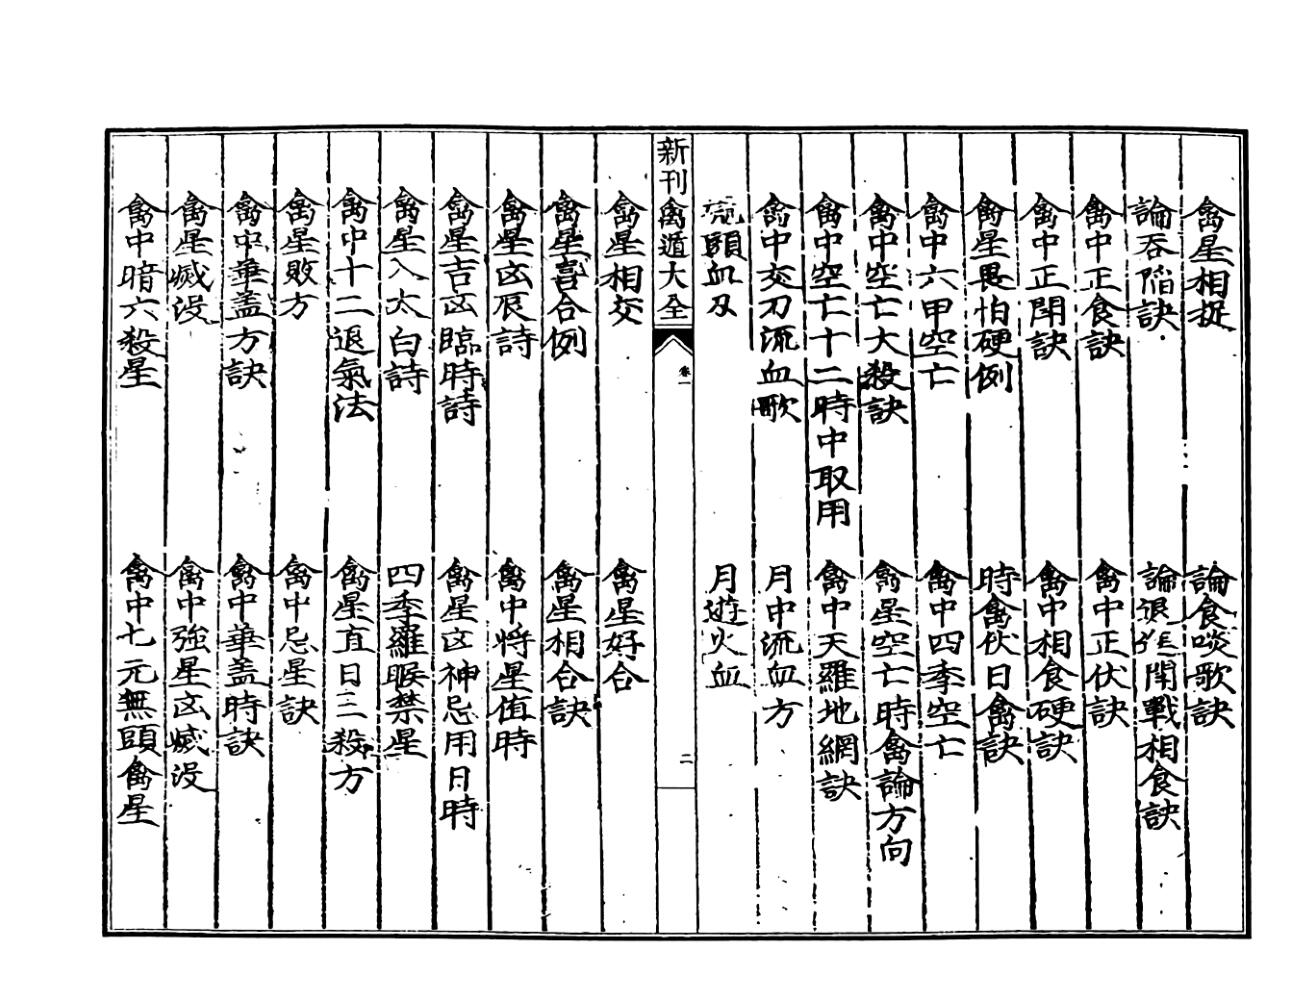 禽星相捉　論食啖歌訣
論吞陷訣　論退　鬪戰相食訣
禽中正食訣　禽中正伏訣
禽中正鬪訣　禽中相食硬訣
禽星畏怕硬例　時禽伏日禽訣
禽中六甲空亡　禽中四季空亡
禽中空亡大殺訣　禽星空亡時禽論方向
禽中空亡十二時中取用　禽中天羅地網訣
禽中交刀流血歌　月中流血方
頭血刃　月遊火血
新刊禽遁大全　卷一　二
禽星相交　禽星好合
禽星喜合例　禽星相合訣
禽星凶辰詩　禽中將星值時
禽星吉凶臨時詩　禽星凶神忌用日時
禽星入太白詩　四季羅睺禁星
禽中十二退氣法　禽星直日三殺方
禽星敗方　禽中忌星訣
禽中華盖方訣　禽中華盖時訣
禽星滅没　禽中強星凶滅没
禽中暗六殺星　禽中七元無頭禽星